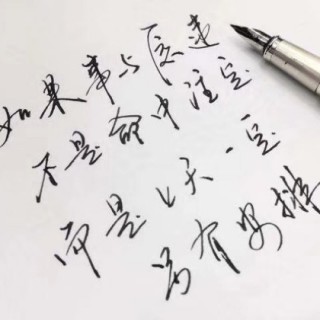 如果事与愿违
不是命中注定
而是上天一定
另有安排